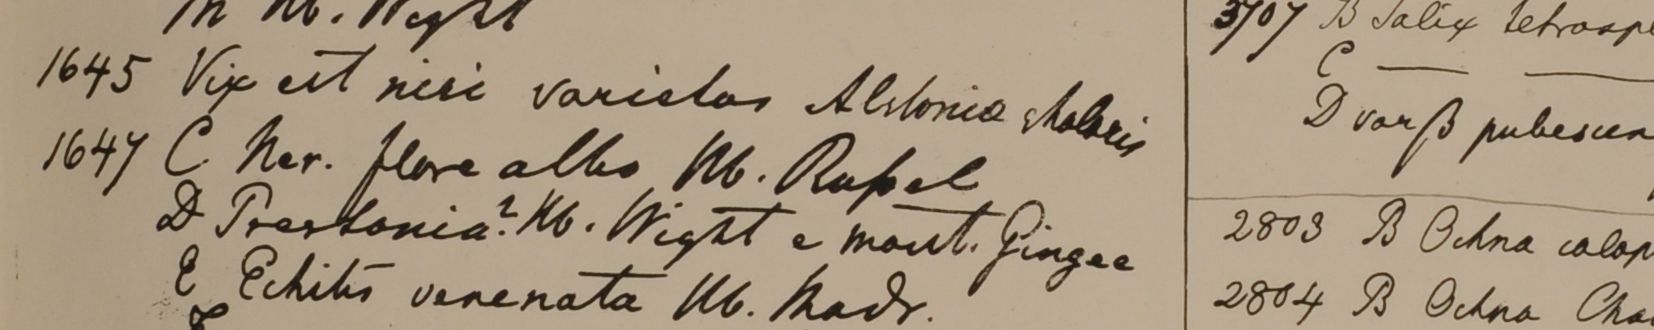 Hb. Wight
1645 Vix est nisi varietas Alstoniæ scholaris
1647 C Ner. flore albo Hb. Russel
D Prestonia? Hb. Wight e mont. Gingee
E Echites venenata Hb. Madr.
3707 B Salix tetraspe
C — —
D var β pubescen
2803 B Ochna calop
2804 B Ochna